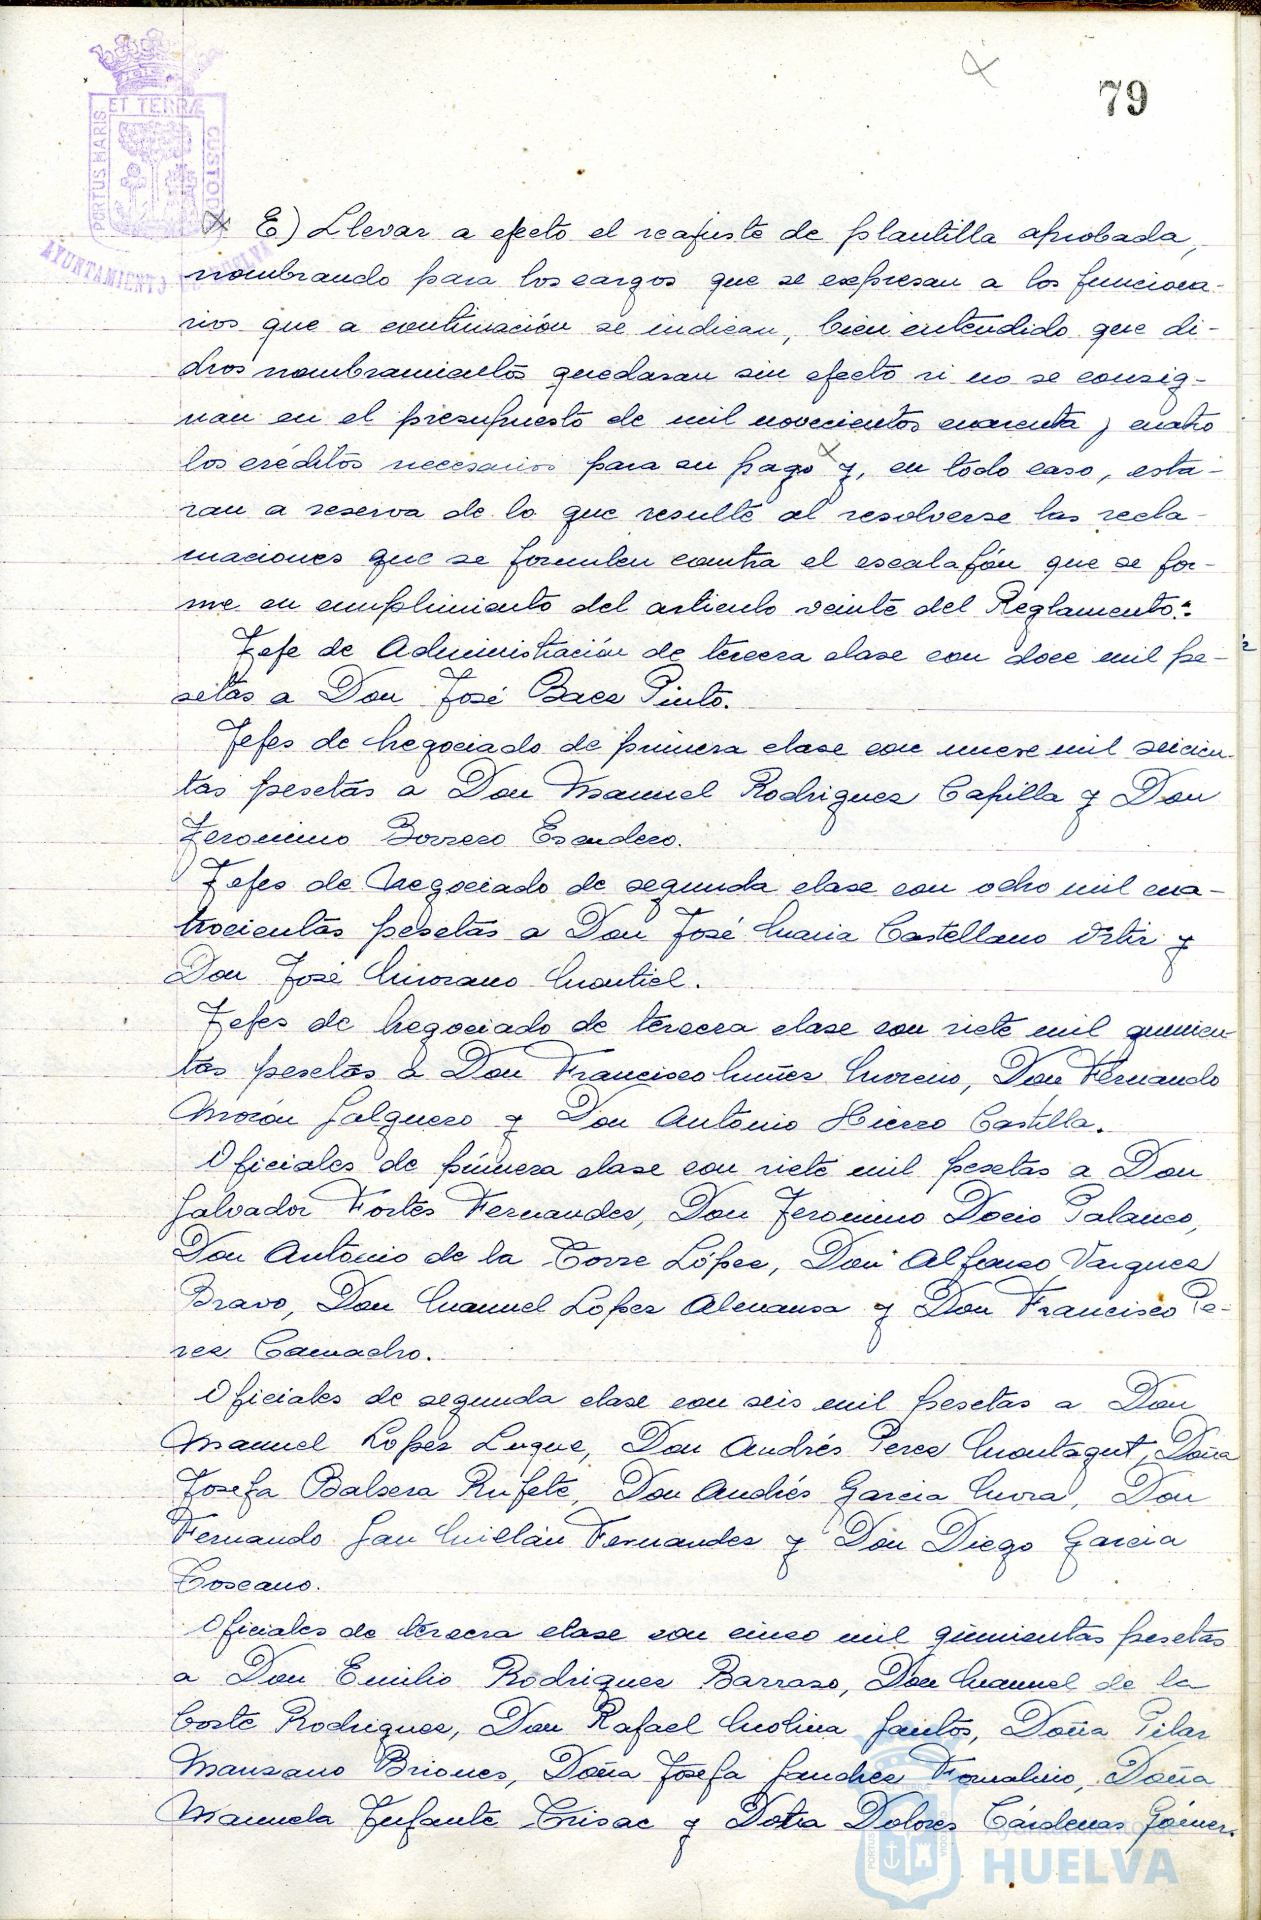 79
PORTUS MARIS ET TERRÆ CUSTODIA
AYUNTAMIENTO DE HUELVA
E) Llevar a efecto el reajuste de plantilla aprobada,
nombrando para los cargos que se expresan a los funciona-
rios que a continuación se indican, bien entendido que di-
chos nombramientos quedasan sin efecto si no se consig-
nan en el presupuesto de mil novecientos cuarenta y cuatro
los créditos necesarios para su pago y, en todo caso, esta-
ran a reserva de lo que resulte al resolverse las recla-
maciones que se formulen contra el escalafón que se for-
me en cumplimiento del articulo veinte del Reglamento.=
Jefe de Administración de tercera clase con doce mil pe-
setas a Don José Baez Pinto.
Jefes de Negociado de primera clase con nueve mil seicien-
tas pesetas a Don Manuel Rodriguez Capilla y Don
Jeronimo Borrero Escudero.
Jefes de Negociado de segunda clase con ocho mil cua-
trocientas pesetas a Don José Maria Castellano Ortiz y
Don José Morano Montiel.
Jefes de Negociado de tercera clase con siete mil quinien-
tas pesetas a Don Francisco Muñez Moreno, Don Fernando
Morón Salguero y Don Antonio Hierro Castilla.
Oficiales de primera clase con siete mil pesetas a Don
Salvador Fortes Fernandez, Don Jeronimo Docio Palanco,
Don Antonio de la Torre López, Don Alfonso Vazquez
Bravo, Don Manuel Lopez Almansa y Don Francisco Pe-
rez Camacho.
Oficiales de segunda clase con seis mil pesetas a Don
Manuel Lopez Luque, Don Andrés Perez Montagut, Doña
Josefa Balsera Rufete, Don Andrés Garcia Mora, Don
Fernando San Millán Fernandez y Don Diego Garcia
Toscano.
Oficiales de tercera clase con cinco mil quinientas pesetas
a Don Emilio Rodriguez Barraso, Don Manuel de la
Coste Rodriguez, Don Rafael Molina Santos, Doña Pilar
Manzano Briones, Doña Josefa Sanchez Doña
Manuela Infante Trisac y Doña Dolores Cárdenas Gómez.
Ayuntamiento de
HUELVA